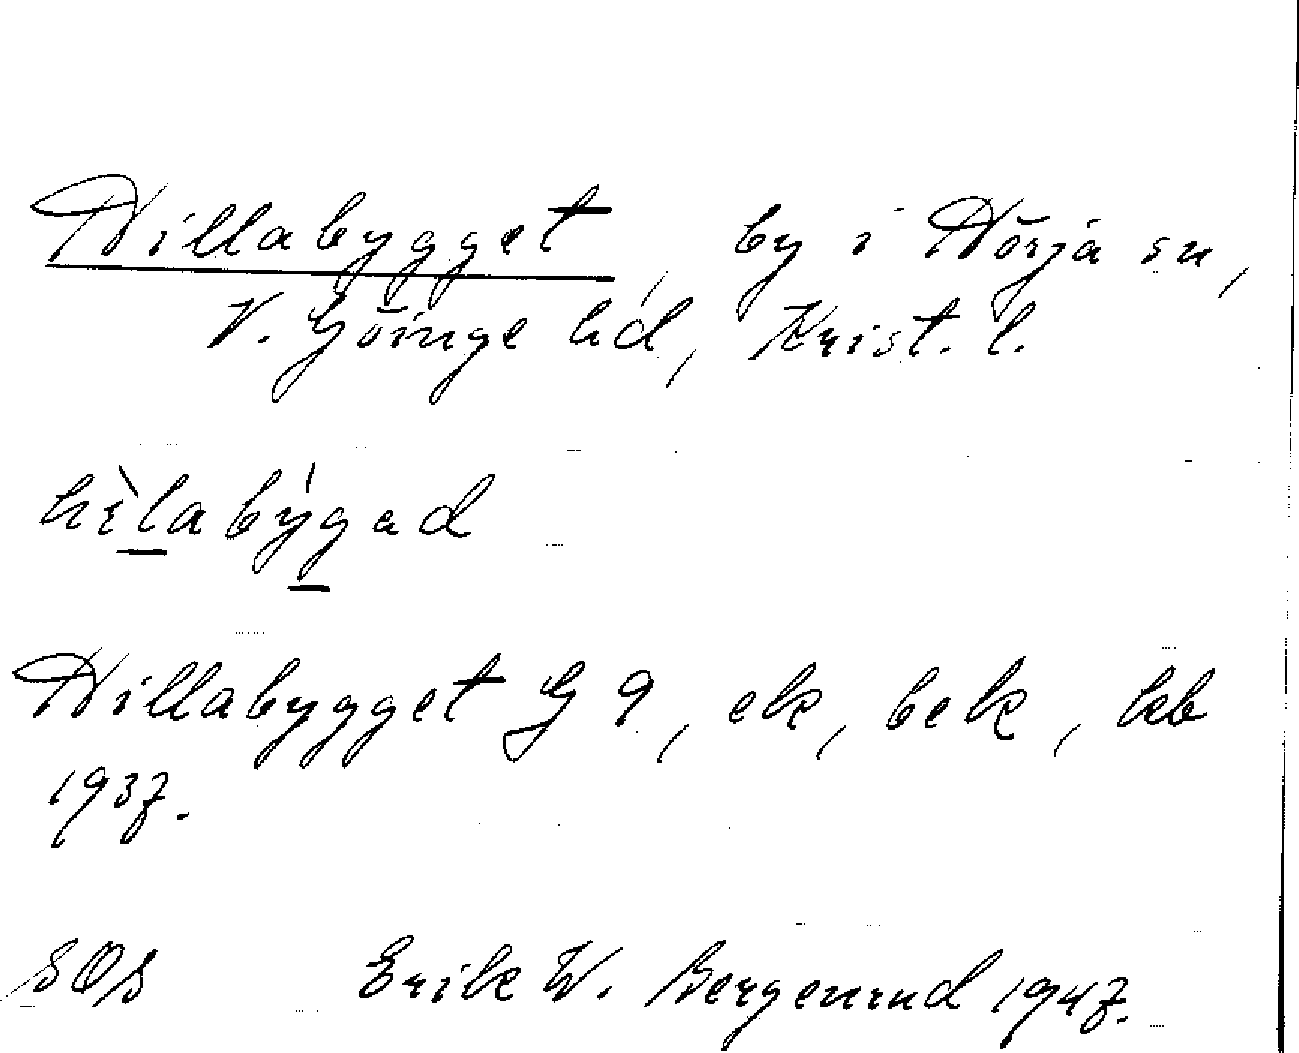 Hillabygget, by i Hörja sn,
V. Göinge hd, Krist. l.
hìlabýgad
Hillabygget G 9, ek, bek, kb
1937.
SOS Erik W. Bergenrud 1947.